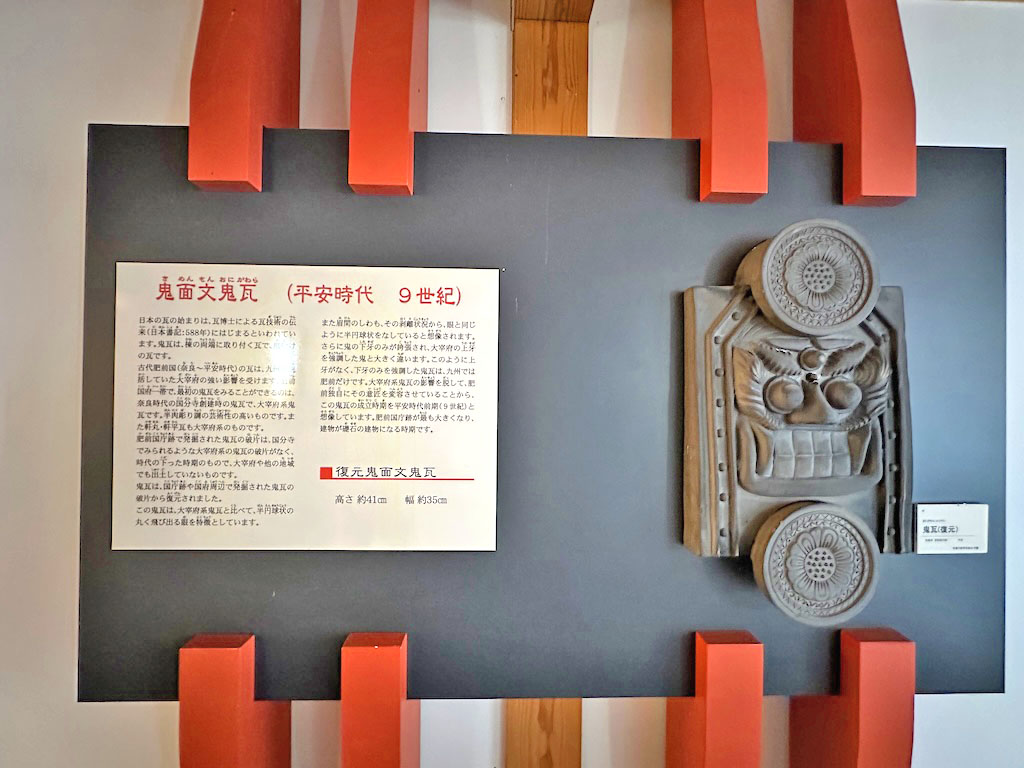 きめんもんおにがわら
鬼面文鬼瓦 (平安時代 9世紀)
日本の瓦の始まりは、瓦博士による瓦技術の伝
来(日本書記:588年)にはじまるといわれてい
ます。鬼瓦は、棟の両端に取り付く瓦で、
の瓦です。
古代肥前国(奈良~平安時代)の瓦は、九州
括していた大宰府の強い影響を受けます。
国府一帯で、最初の鬼瓦をみることができるのは、
奈良時代の国分寺創建時の鬼瓦で、大宰府系鬼
瓦です。半肉彫り調の芸術性の高いものです。ま
た軒丸・軒平瓦も大宰府系のものです。
肥前国庁跡で発掘された鬼瓦の破片は、国分寺
でみられるような大宰府系の鬼瓦の破片がなく、
時代の下った時期のもので、大宰府や他の地域
でも出土していないものです。
鬼瓦は、国庁跡や国府周辺で発掘された鬼瓦の
破片から復元されました。
この鬼瓦は、大宰府系鬼瓦と比べて、半円球状の
丸く飛び出る眼を特徴としています。
また眉間のしわも、その剥離状況から、眼と同じ
ように半円球状をなしていると想像されます。
さらに鬼の下牙のみが誇張され、大宰府の上牙
を強調した鬼と大きく違います。このように上
牙がなく、下牙のみを強調した鬼瓦は、九州では
肥前だけです。大宰府系鬼瓦の影響を脱して、肥
前独自にその意匠を変容させていることから、
この鬼瓦の成立時期を平安時代前期(9世紀)と
想像しています。肥前国庁跡が最も大きくなり、
建物が礎石の建物になる時期です。
復元鬼面文鬼瓦
高さ 約41cm 幅 約35cm
鬼瓦(復元)